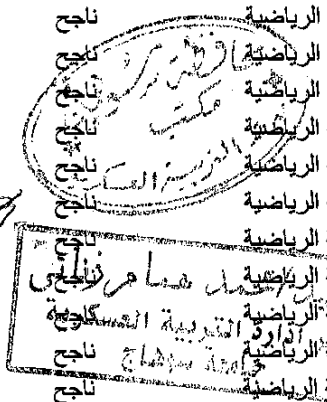 الرياضية ناجح
الرياضية ناجح
الرياضية ناجح
الرياضية ناجح
الرياضية ناجح
الرياضية ناجح
الرياضية ناجح
الرياضية ناجح
الرياضية ناجح
الرياضية ناجح
الرياضية ناجح
مكتب
التربية العسكرية
إدارة التربية العسكرية
جامعة سوهاج